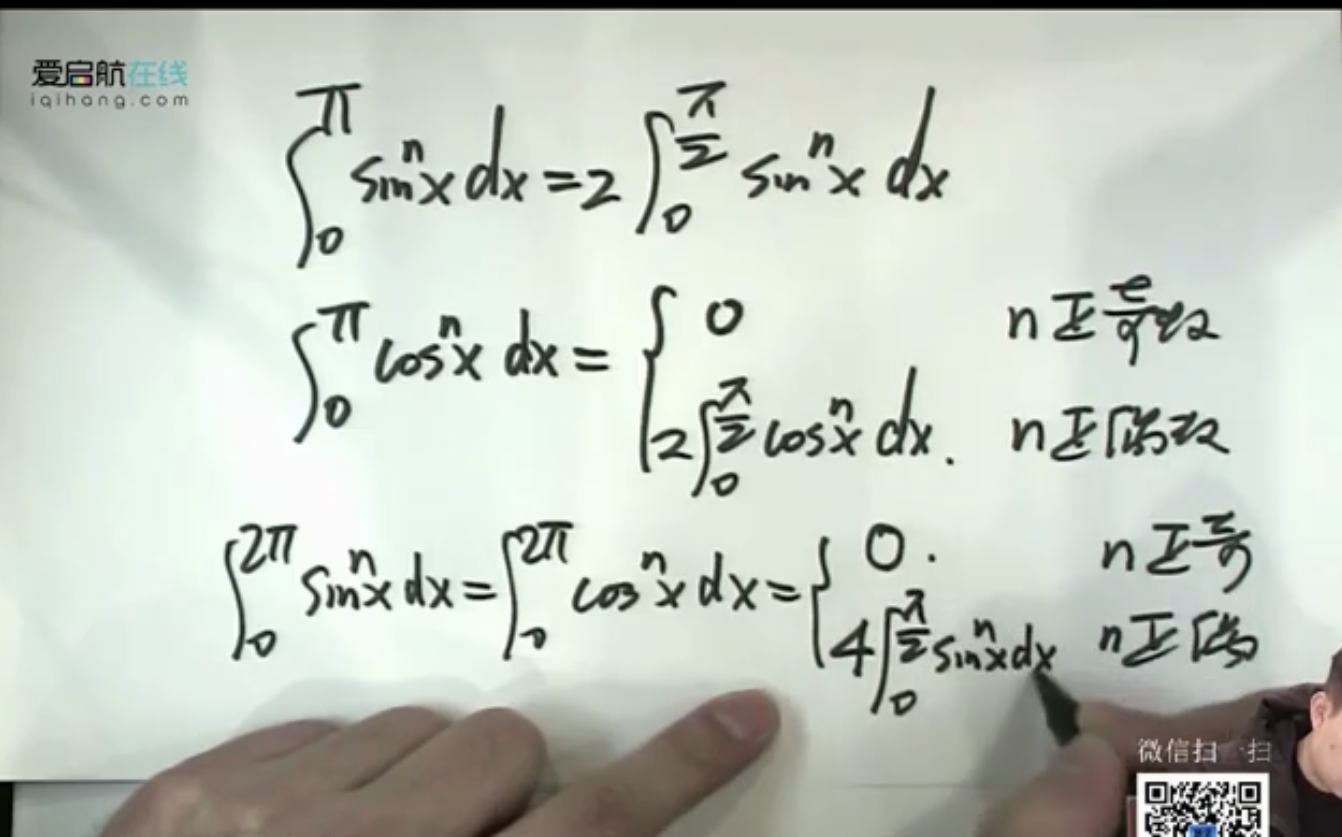 爱启航在线
iqihang.com
∫₀^π sinⁿx dx = 2 ∫₀^(π/2) sinⁿx dx
∫₀^π cosⁿx dx = { 0 n正奇数
2∫₀^(π/2) cosⁿx dx. n正偶数
∫₀^(2π) sinⁿx dx = ∫₀^(2π) cosⁿx dx = { 0. n正奇
4∫₀^(π/2) sinⁿx dx n正偶
微信扫一扫